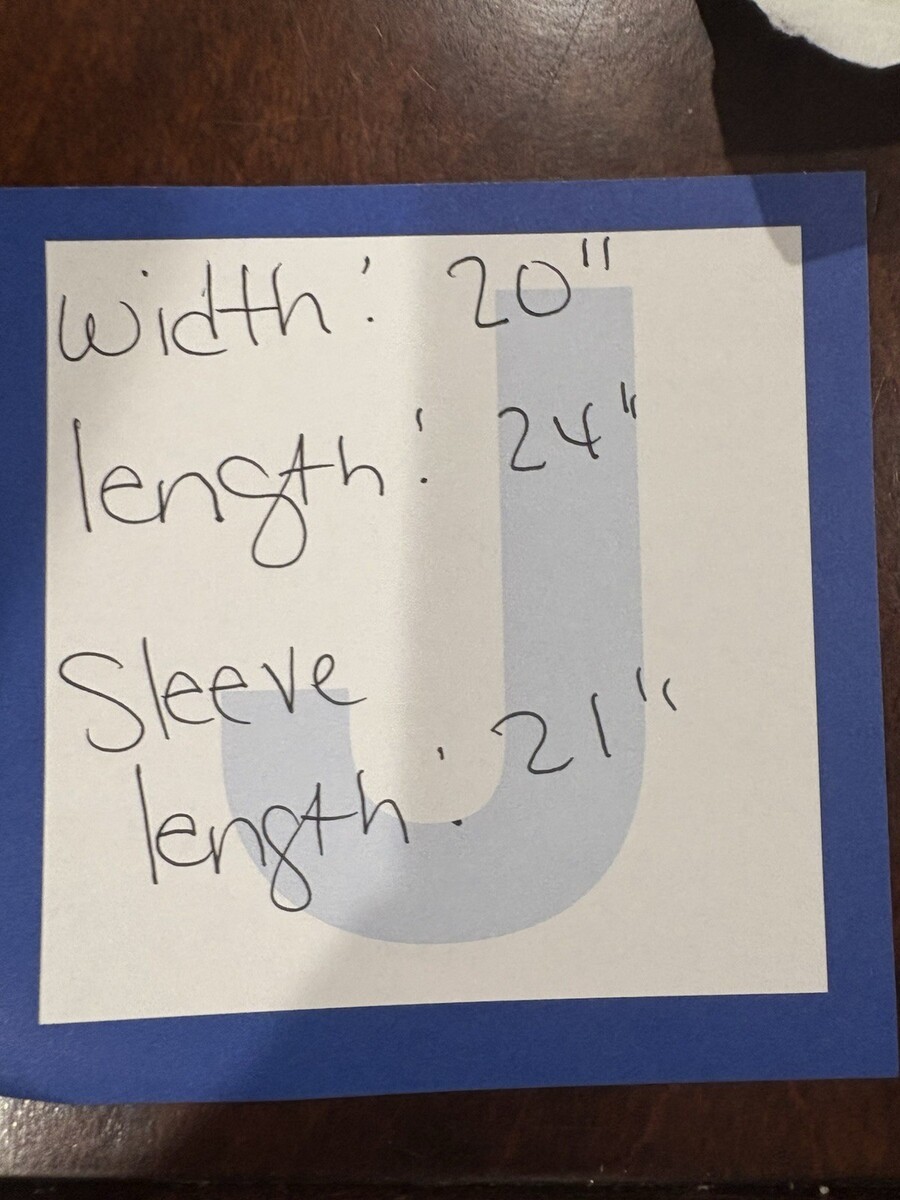 width: 20"
length: 24"
Sleeve
length: 21"
J